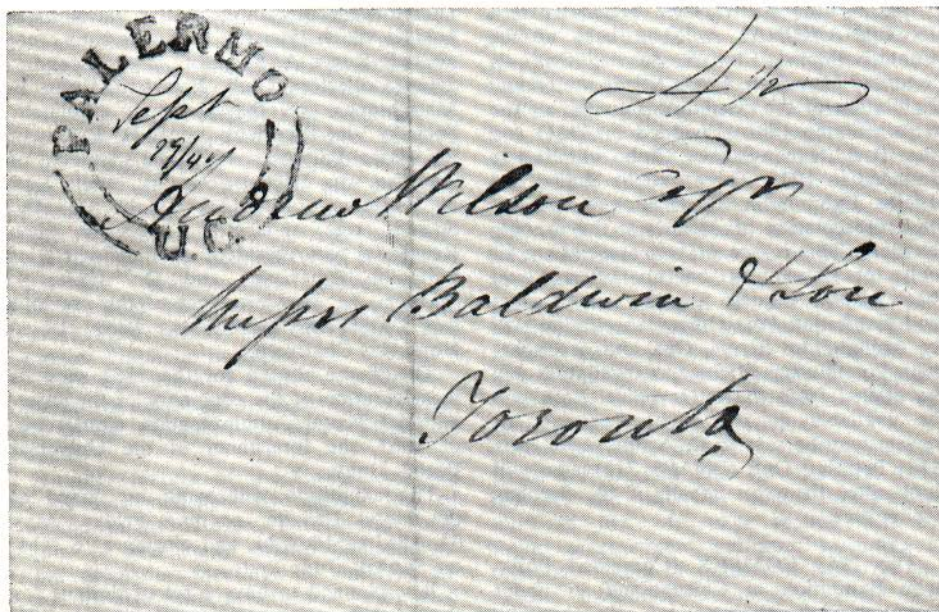 PALERMO
Sept
29/47
U.C.
4 1/2
Andrew Wilson Esqr
Messrs Baldwin & Son
Toronto